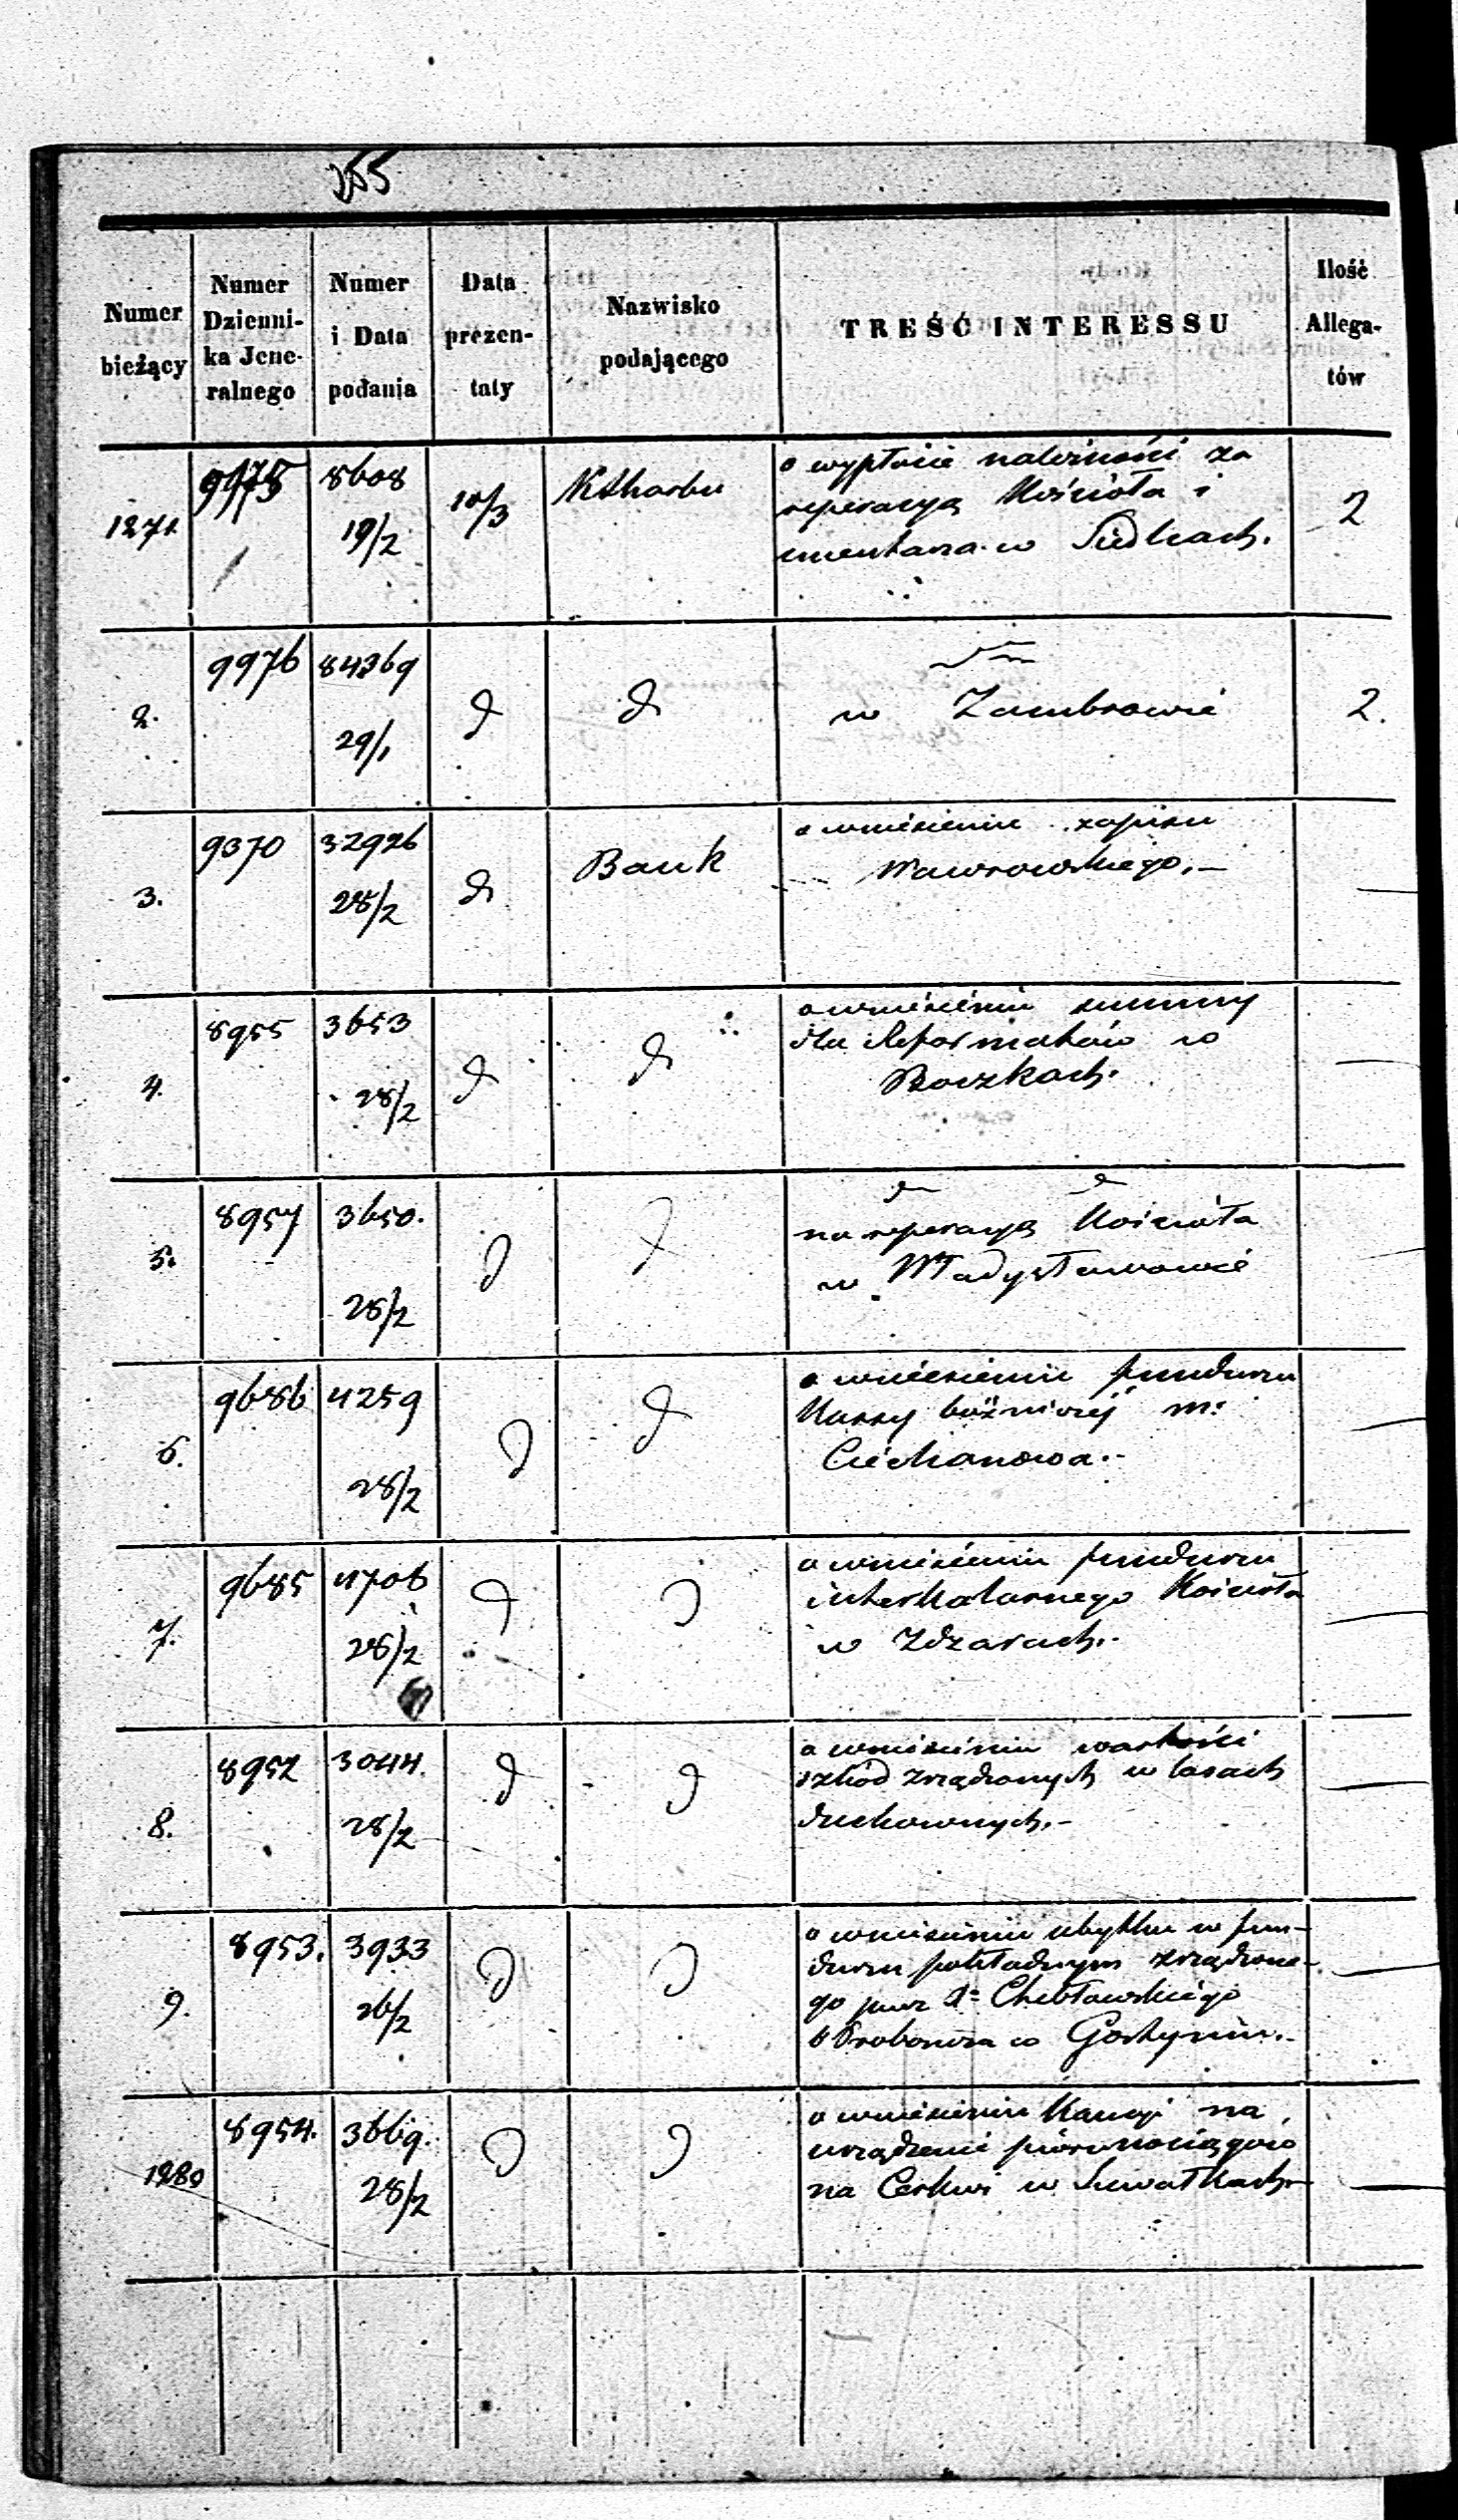 355
Numer bieżący
Numer Dzienni-ka Jene-ralnego
Numer i Data podania
Data prezen-taty
Nazwisko podającego
TREŚĆ INTERESSU
Ilość Allega-tów
1271. 9975 8608 19/2 10/3 K Skarbu
o wypłacie należności za
reperacyą Kościoła i
cmentarza w Siedlcach. 2
2. 9976 84369 29/1 d d
w Zambrowie 2.
3. 9370 32926 28/2 d Bank
o wniesieniu zapisu
Nawrowskiego. —
4. 8955 3653 28/2 d d
o wniesieniu summy
dla Reformatów w
Boczkach. —
5. 8957 3650. 28/2 d d
d d
na reperacyą Kościoła
w Władysławowie —
6. 9686 4259 28/2 d d
o wniesieniu funduszu
Kassy bóżniczej m:
Ciechanowa. —
7. 9685 4706 28/2 d d
o wniesieniu funduszu
interkalarnego Kościoła
w Zdżarach. —
8. 8952 3044. 28/2 d d
o wniesieniu wartości
szkód zrządzonych w lasach
duchownych. —
9. 8953. 3933 26/2 d d
o wniesieniu ubytku w fun-
duszu pokładnym zrządzone-
go przez Xa Chebławskiego
Proboszcza w Gostyninie. —
1280 8954. 3669. 28/2 d d
o wniesieniu Kaucyi na
urządzenie piorunociągów
na Cerkwi w Suwałkach —